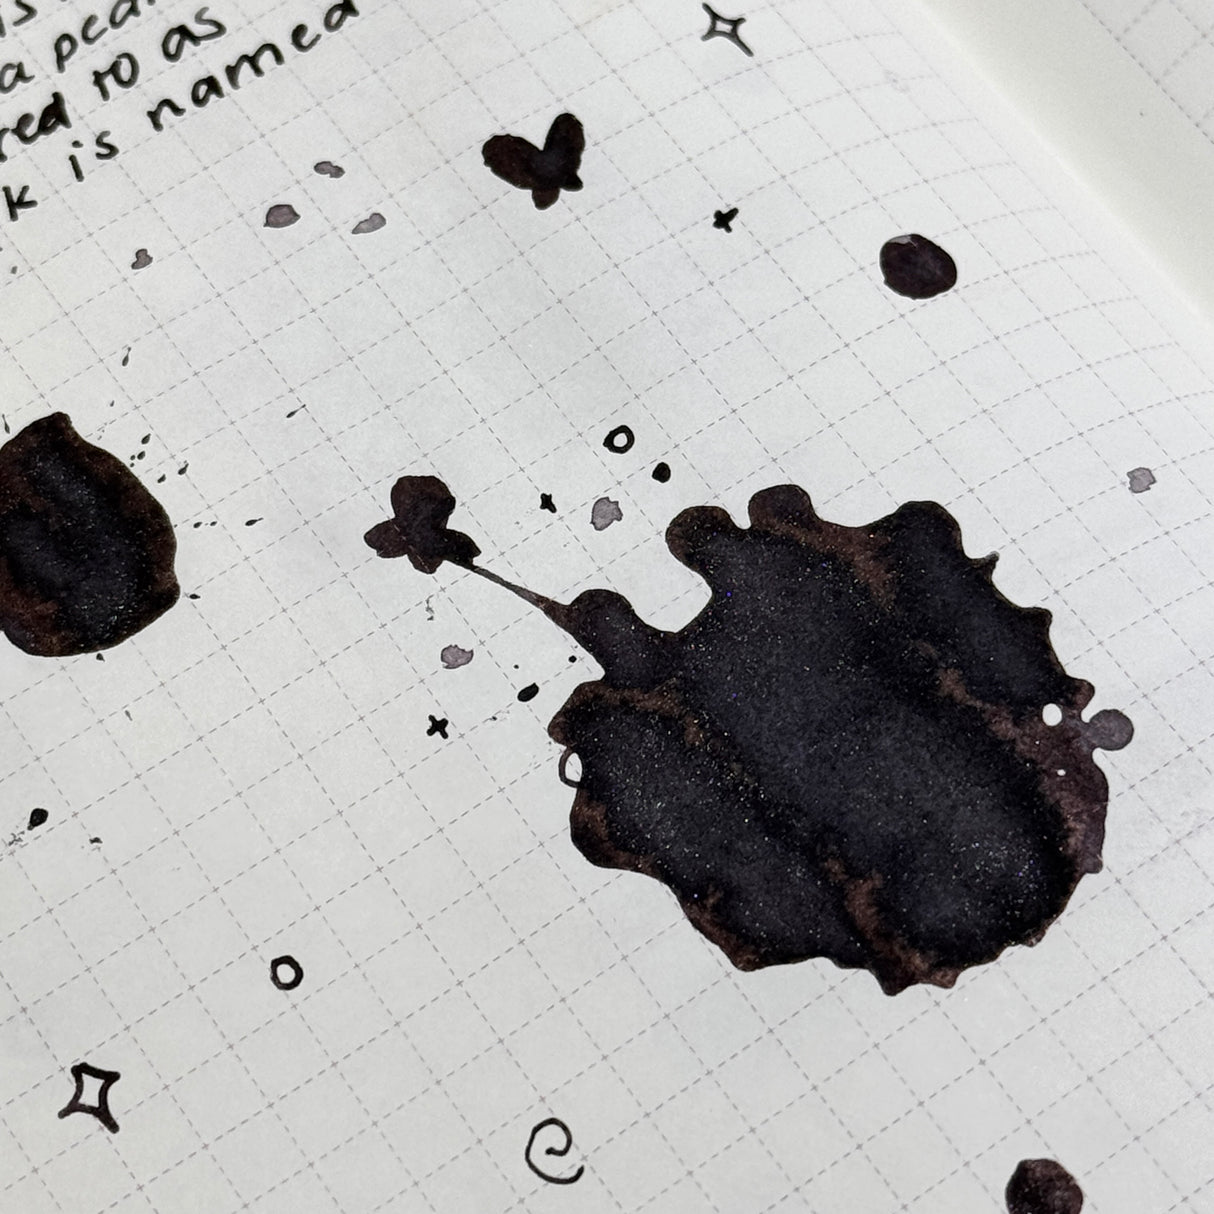 is
a pea
red to as
k is named